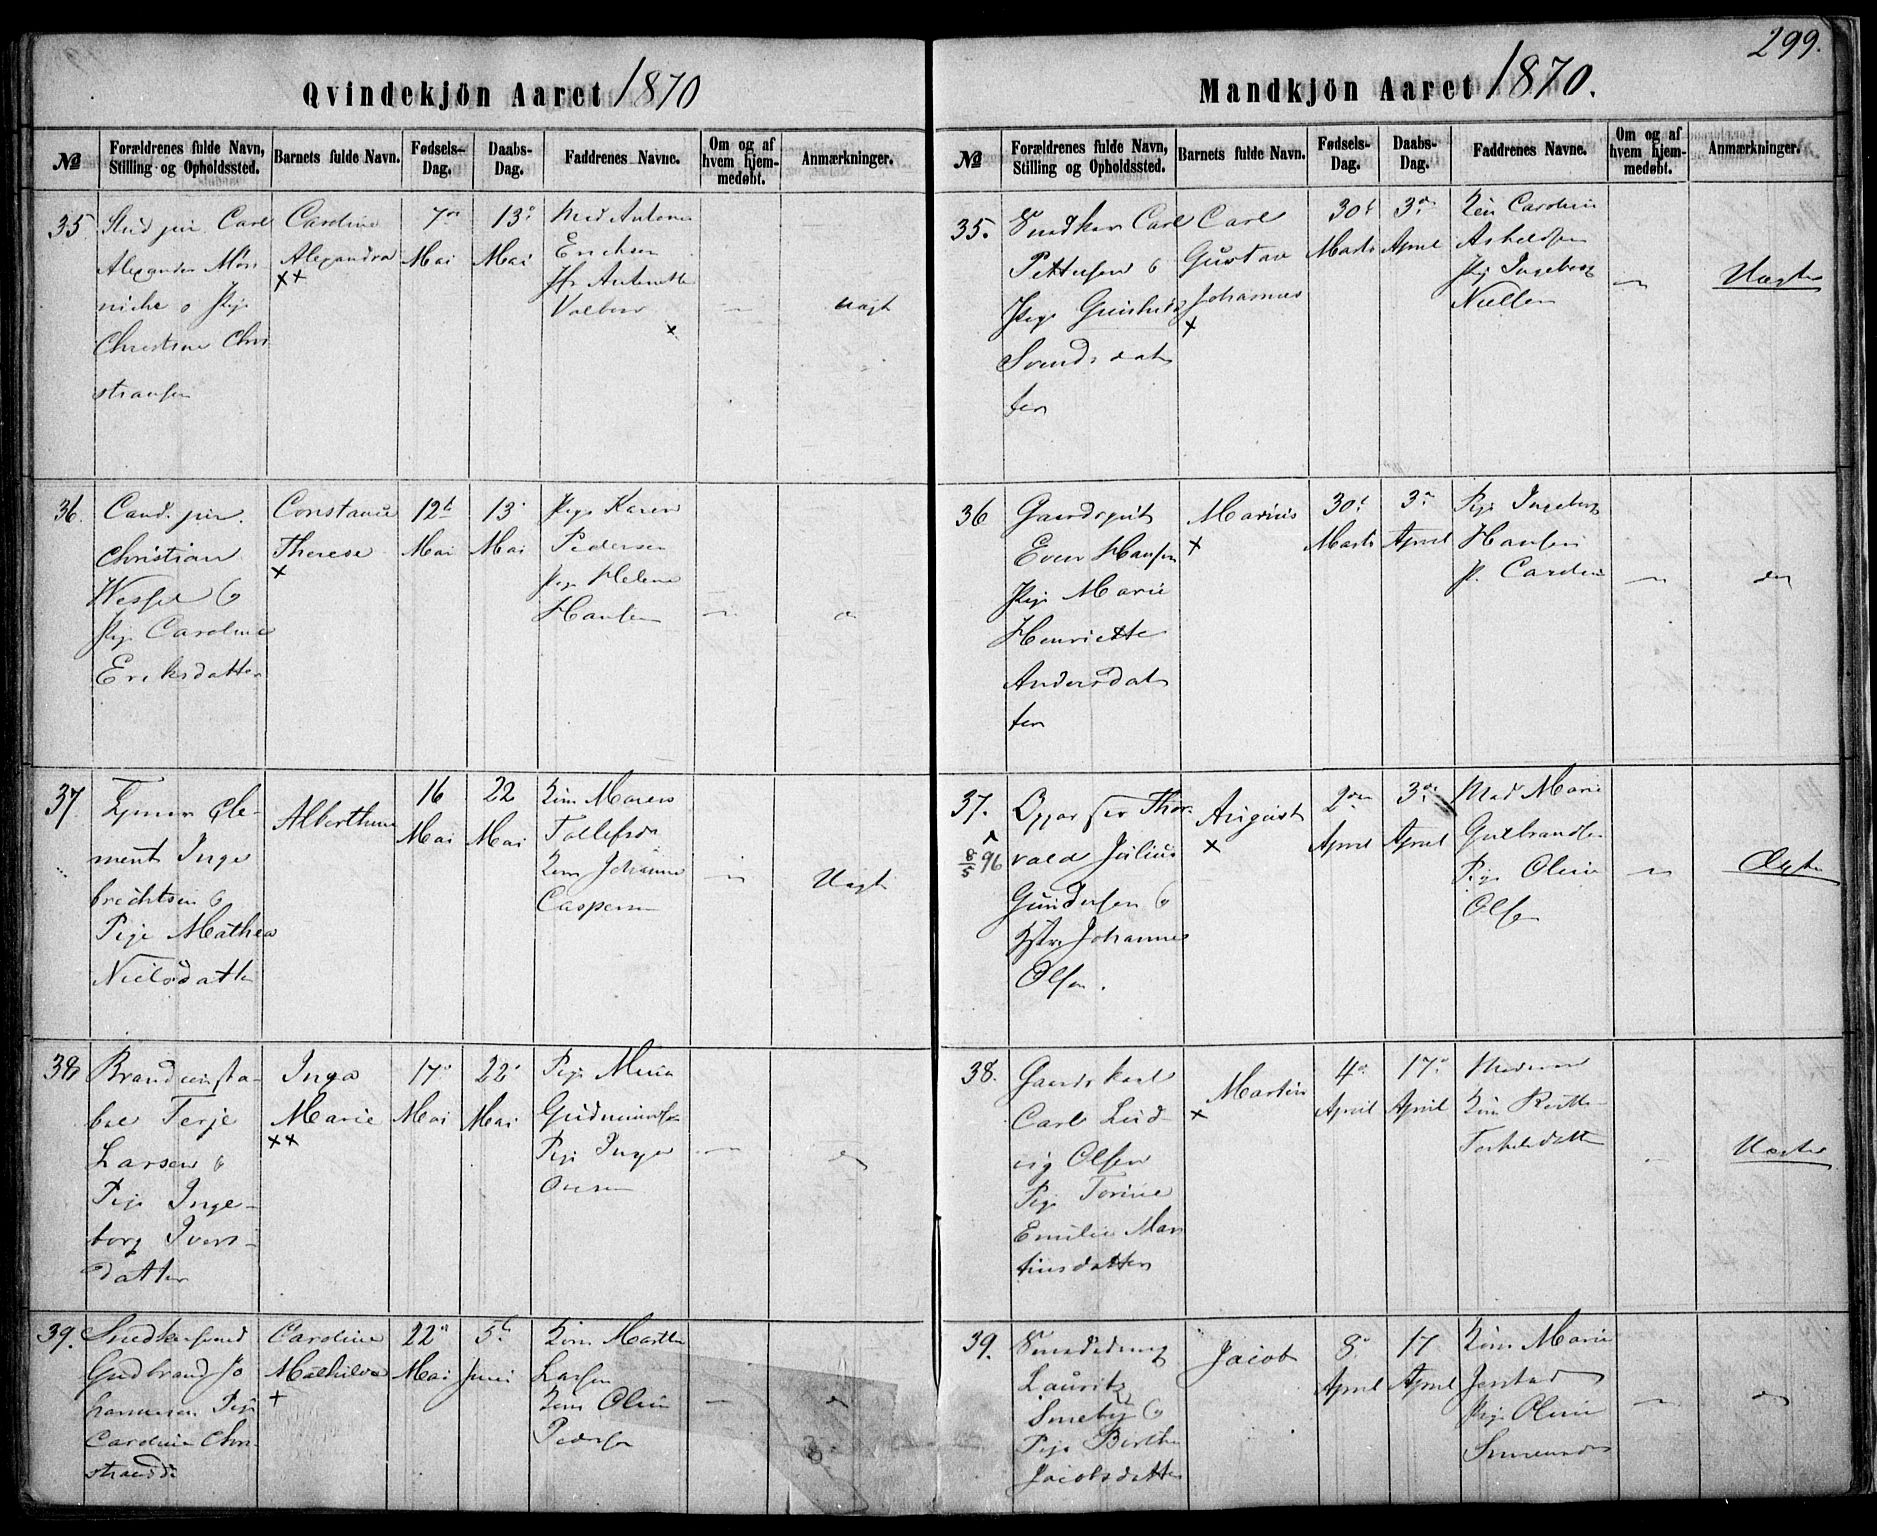 299.
Qvindekjön Aaret 1870
№
Forældrenes fulde Navn, Stilling og Opholdssted.
Barnets fulde Navn.
Fødsels-Dag.
Daabs-Dag.
Faddrenes Navne.
Om og af hvem hjem-medøbt.
Anmærkninger.
35
Stud jur Carl
Alexander
niche o Pige
Christine Chri
stiansen
Caroline
Alexandra
××
7de
Mai
13de
Mai
Mad Antone
Erichsen
Jfr Antonette
×
Uægt
36.
Cand. jur.
Christian
Wessel o
Pige Caroline
Eriksdatter
Constance
Therese
×
12te
Mai
13
Mai
Pige Karen
Pedersen
Pige Helene
Hansen
37.
Cle-
ment Inge
brechtsen o
Pige Mathea
Nielsdatter
Alberthine
16
Mai
22
Mai
Kone Maren
Tollefsen
Kone Johanne
Caspersen
Uægt
38
Brandconsta-
bel Terje
Larsen o
Pige Inge-
borg Ivers-
datter
Inga
Marie
××
17
Mai
22
Mai
Pige
Gudmundsen
Pige Inger
39.
Snedkersvend
Gudbrand Jo
hannesen Pige
Caroline Chri
Caroline
Mathilde
+
22
Mai
5te
Juni
Kone Marthe
Larsen
Kone Oline
Pedersen
Mandkjön Aaret 1870.
№
Forældrenes fulde Navn, Stilling og Opholdssted.
Barnets fulde Navn.
Fødsels-Dag.
Daabs-Dag.
Faddrenes Navne.
Om og af hvem hjem-medøbt.
Anmærkninger.
35.
Carl
Pettersen o
Pige Gunhild
Svendsdat
ter
Carl
Gustav
Johannes
×
30t
Marts
3de
April
Caroline
Pige Ingeborg
Nielsen
Uægte
36
Gaardsgut
Even Hansen
Pige Marie
Henriette
Andersdat
ter
Marius
×
30t
Marts
3de
April
Pige Ingeborg
Hansen
P. Caroline
do
37.
8/5 96
Thor
vald Julius
Gundersen o
Hstr. Johanne
Olsen.
August
×
2den
April
3de
April
Mad Marie
Gulbrandsen
Pige Oline
Olsen
Ægte
38.
Gaardskarl
Carl Lud
vig Olsen
Pige Torine
Emilie Mar
tinsdatter
Martin
×
4de
April
17de
April
Moderen
Kone Berthe
Torkelsdatter
Uægte
39.
Lauritz
Smeby o
Pige Berthe
Jacobsdatter
Jacob
8
April
17
April
Kone Marie
Jerstad
Pige Oline